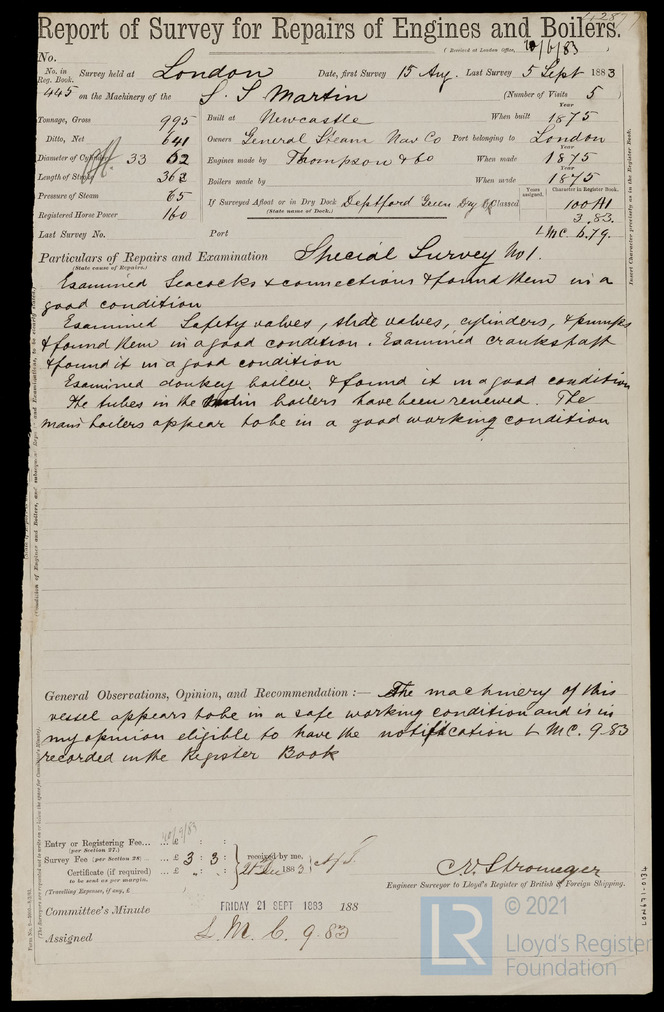 Report of Survey for Repairs of Engines and Boilers.
(Received at London Office, /6/83 )
No.
No. in Reg. Book. Survey held at London Date, first Survey 15 Aug. Last Survey 5 Sept 1883
445 on the Machinery of the S. S Martin (Number of Visits 5 )
Tonnage, Gross 995 Built at Newcastle When built Year 1875
Ditto, Net 641 Owners General Steam Nav Co Port belonging to London
Diameter of Cylinders 33 62 Engines made by Thompson & Co When made Year 1875
Length of Stroke 36 Boilers made by When made Year 1875
Pressure of Steam 65 If Surveyed Afloat or in Dry Dock Deptford Green Dry D Classed Years assigned. Character in Register Book. 100A1
(State name of Dock.)
Registered Horse Power 160 3.83.
Last Survey No. Port LMC. 6.79.
Particulars of Repairs and Examination Special Survey No 1.
(State cause of Repairs.)
Examined Seacocks & connections & found them in a
good condition
Examined Safety valves, slide valves, cylinders, & pumps
& found them in a good condition. Examined crankshaft
& found it in a good condition
Examined donkey boiler & found it in a good condition
The tubes in the main boilers have been renewed. The
main boilers appear to be in a good working condition
General Observations, Opinion, and Recommendation:— The machinery of this
vessel appears to be in a safe working condition and is in
my opinion eligible to have the notification L MC. 9-83
recorded in the Register Book
Entry or Registering Fee... ... £ : :
(per Section 27.)
Survey Fee (per Section 28) ... £ 3 : 3 : received by me,
Certificate (if required) ... £ : : 1883
to be sent as per margin.
(Travelling Expenses, if any, £ )
C. Stromeyer
Engineer Surveyor to Lloyd's Register of British & Foreign Shipping.
Committee's Minute FRIDAY 21 SEPT 1883 188
Assigned L. M. C. 9.83
Insert Character precisely as in the Register Book.
LON671-0134
LR
© 2021
Lloyd's Register
Foundation